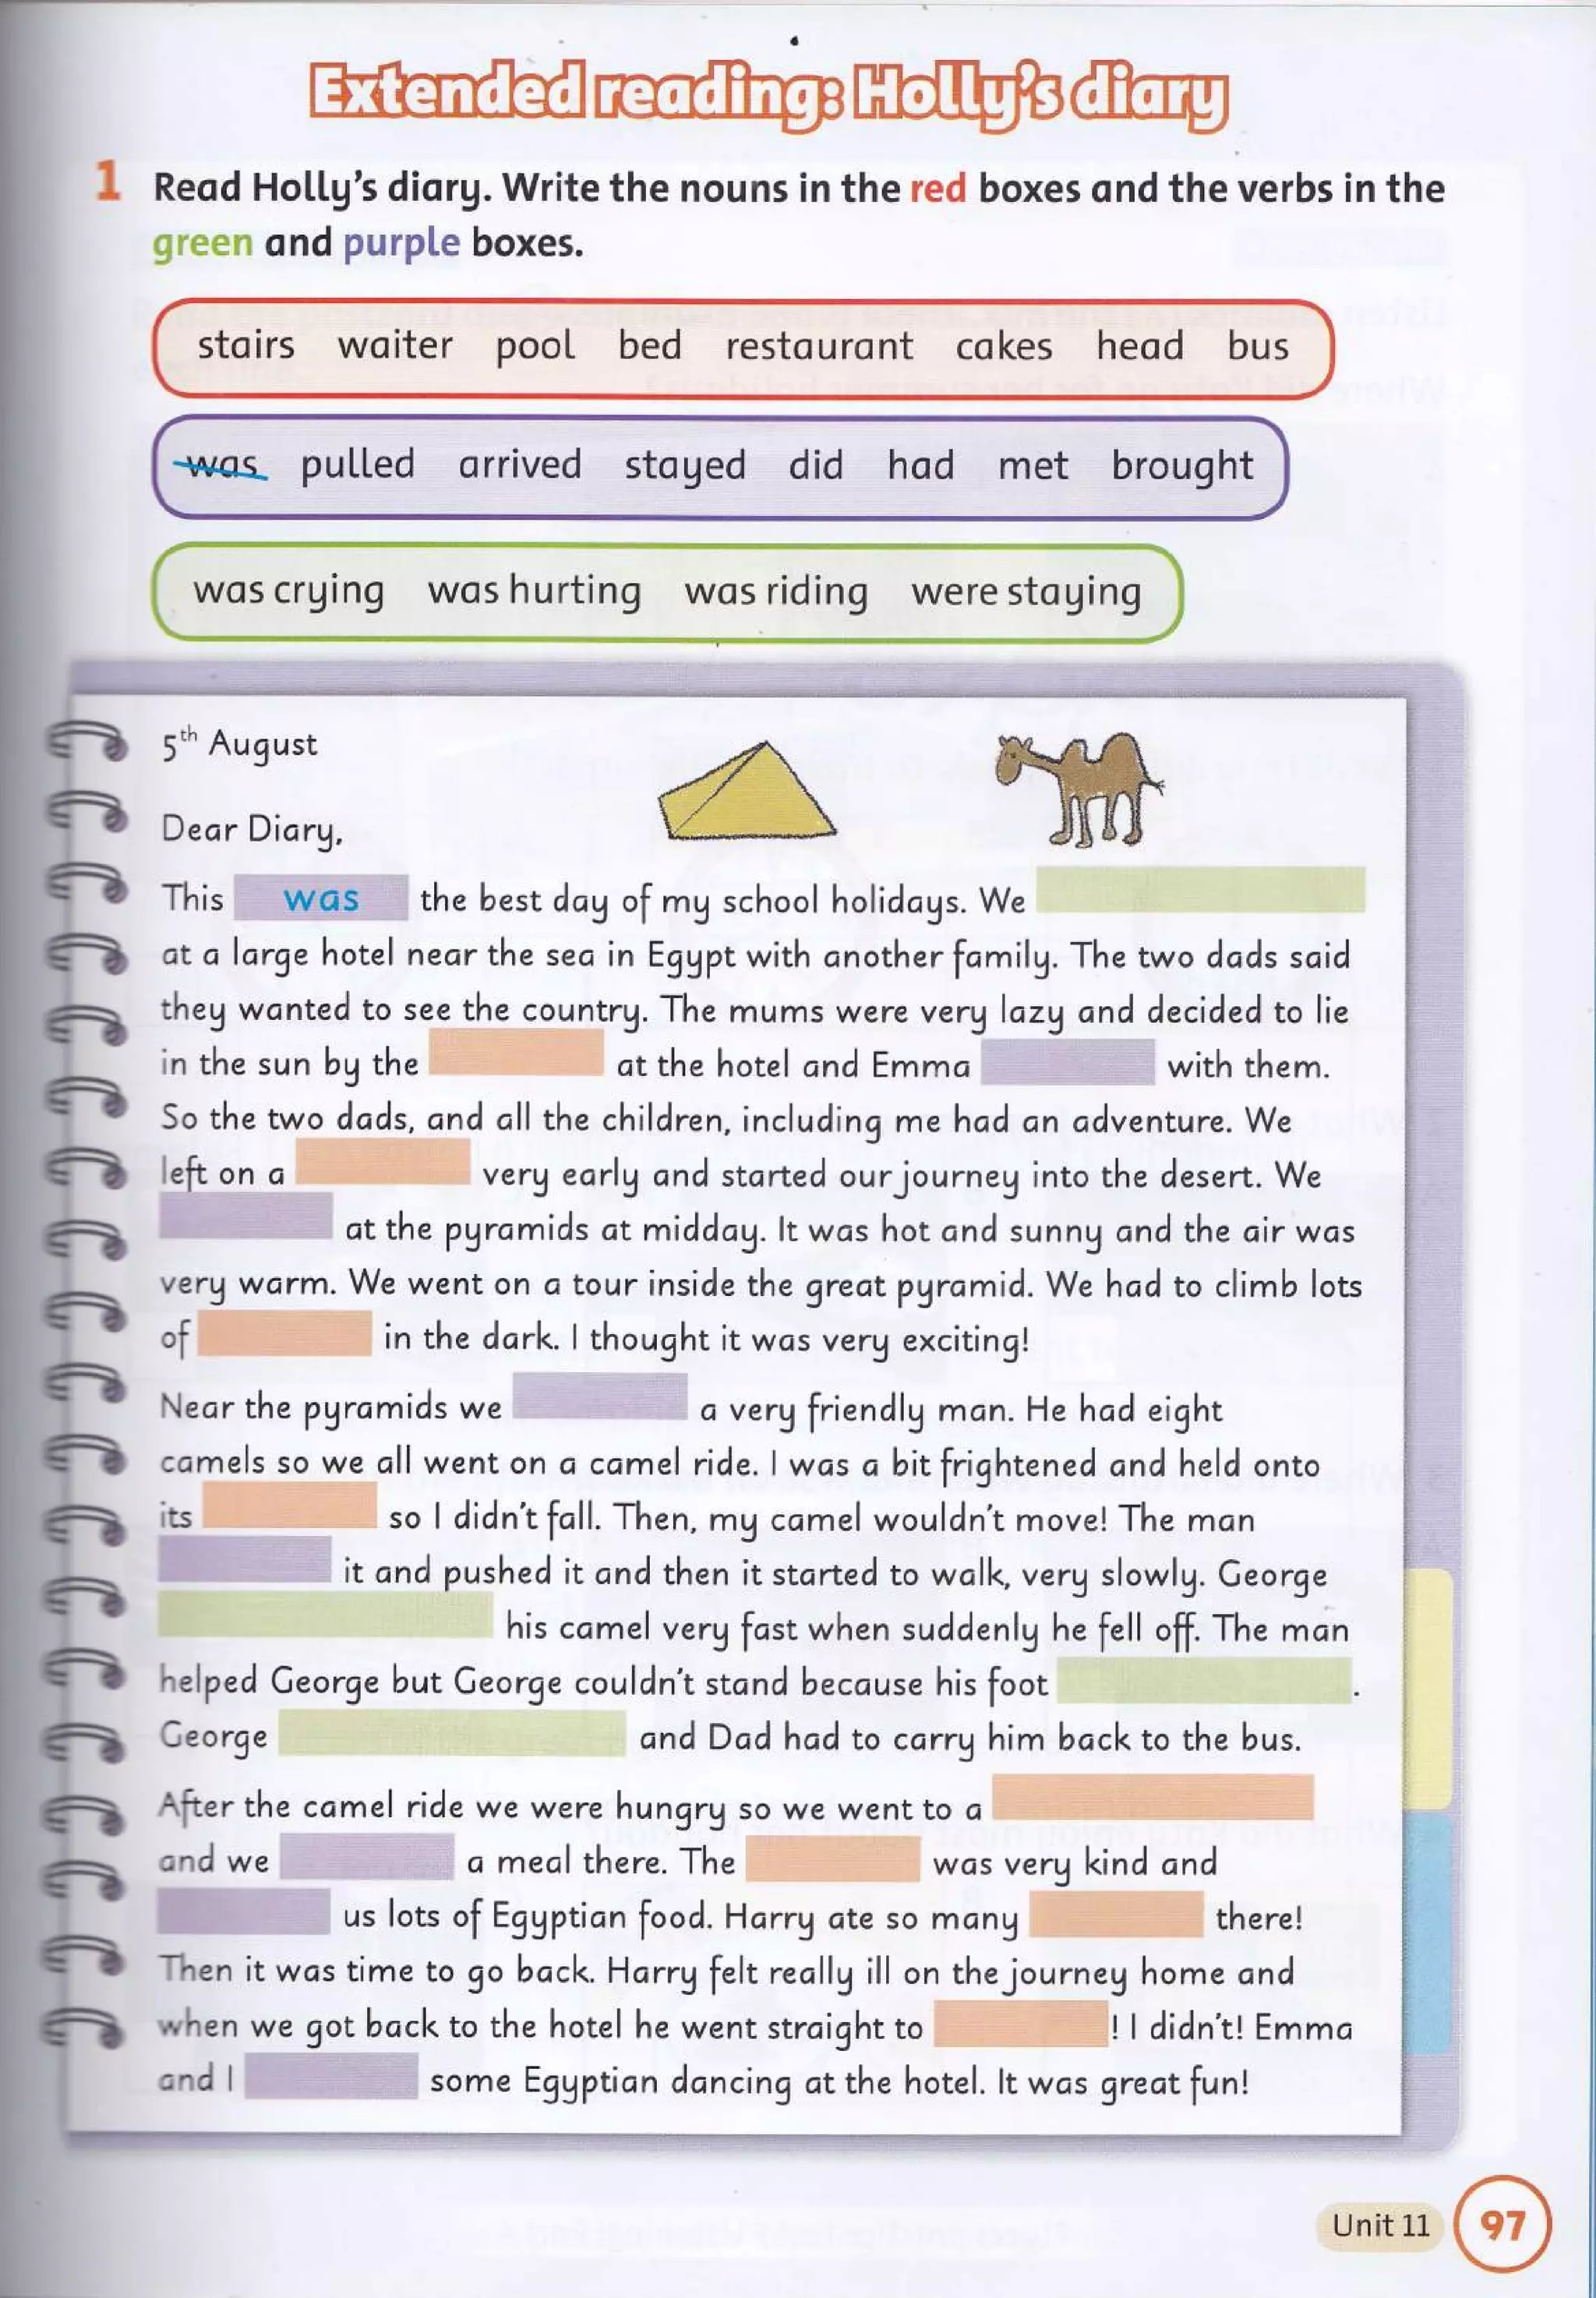 Extended reading: Holly's diary
1 Read Holly's diary. Write the nouns in the red boxes and the verbs in the
green and purple boxes.
stairs waiter pool bed restaurant cakes head bus
was pulled arrived stayed did had met brought
was crying was hurting was riding were staying
5th August
Dear Diary,
This was the best day of my school holidays. We
at a large hotel near the sea in Egypt with another family. The two dads said
they wanted to see the country. The mums were very lazy and decided to lie
in the sun by the at the hotel and Emma with them.
So the two dads, and all the children, including me had an adventure. We
left on a very early and started our journey into the desert. We
at the pyramids at midday. It was hot and sunny and the air was
very warm. We went on a tour inside the great pyramid. We had to climb lots
of in the dark. I thought it was very exciting!
Near the pyramids we a very friendly man. He had eight
camels so we all went on a camel ride. I was a bit frightened and held onto
its so I didn't fall. Then, my camel wouldn't move! The man
it and pushed it and then it started to walk, very slowly. George
his camel very fast when suddenly he fell off. The man
helped George but George couldn't stand because his foot .
George and Dad had to carry him back to the bus.
After the camel ride we were hungry so we went to a
and we a meal there. The was very kind and
us lots of Egyptian food. Harry ate so many there!
Then it was time to go back. Harry felt really ill on the journey home and
when we got back to the hotel he went straight to ! I didn't! Emma
and I some Egyptian dancing at the hotel. It was great fun!
Unit 11 97